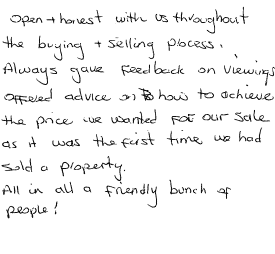 Open + honest with us throughout
the buying + selling process.
Always gave feedback on viewings
offered advice on how to achieve
the price we wanted for our sale
as it was the first time we had
sold a property.
All in all a friendly bunch of
people!